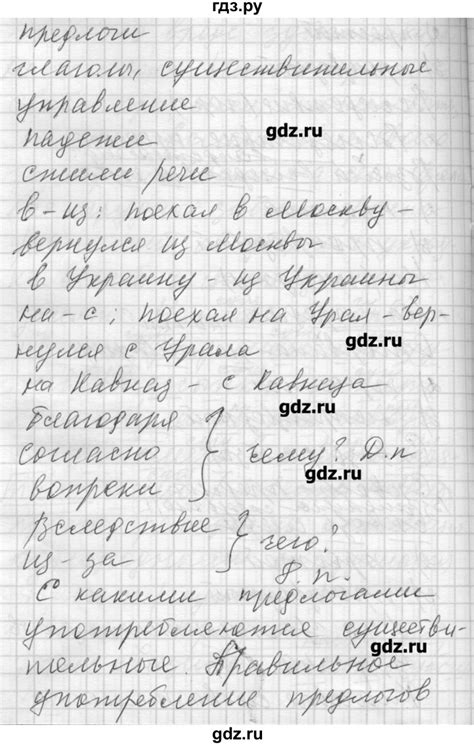 гдз.ру
предлоги
глаголы, существительные
управление
падежи
gdz.ru
стили речи
gdz.ru
в-из: поехал в Москву -
вернулся из Москвы
в Украину - из Украины
на-с; поехал на Урал - вер-
gdz.ru
нулся с Урала
на Кавказ - с Кавказа
gdz.ru
Благодаря
согласно } чему? Д.п
вопреки
gdz.ru
Вследствие } чего?
из-за
gdz.ru
Р.п.
С какими предлогами
употребляются существи-
gdz.ru
тельные. Правильное
употребление предлогов
gdz.ru